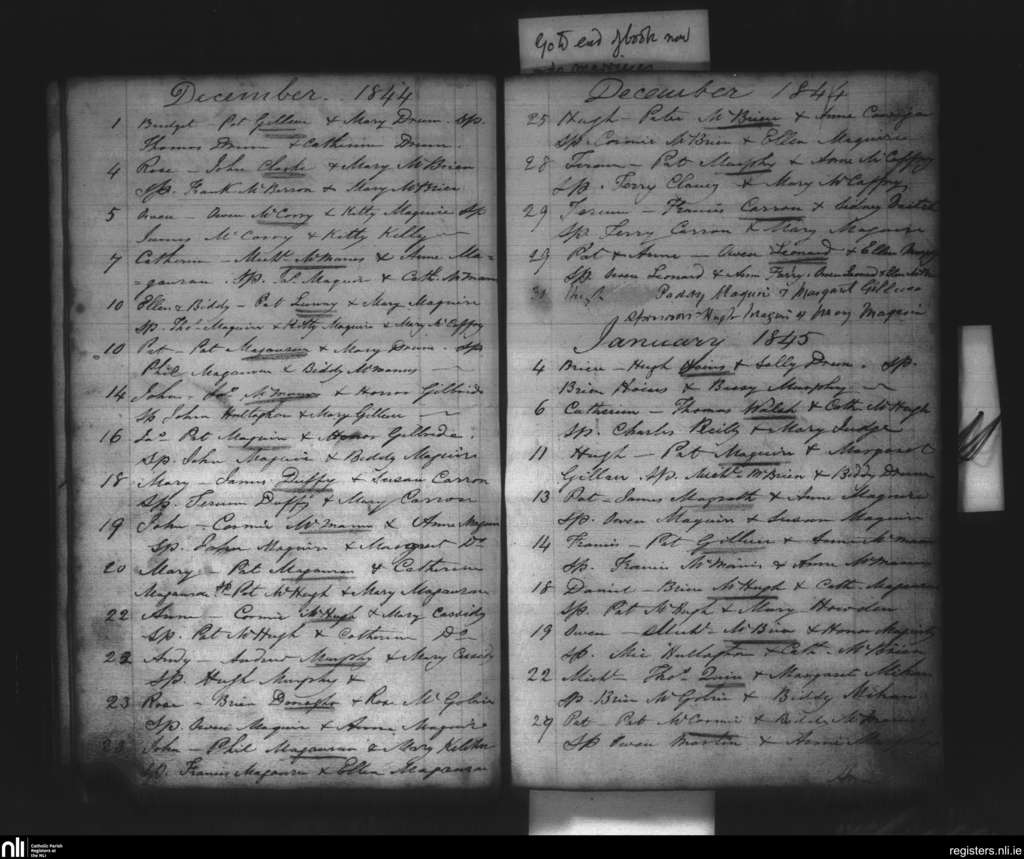 Go to end of book now
December 1844
1 Bridget Pat Gilleece & Mary Drum. Sp.
Thomas Drum & Catherine Drum.
4 Rose - John Clarke & Mary McBrien
Sp. Frank McBarron & Mary McBrien
5 Owen - Owen McCorry & Kitty Maguire Sp
James McCorry & Kitty Kelly
7 Catherine - Michl. McManus & Anne Ma=
=gauran. Sp. Maguire & Cath. McManus
10 Ellen & Biddy - Pat Lunny & Mary Maguire
Sp. Thos. Maguire & Kitty Maguire & Mary McCaffry
10 Pat - Pat Magauran & Mary Drum. Sp
Phil Magauran & Biddy McManus
14 John - Jno. McManus & Honor Gilbride
Sp John Hallaghan & Mary Gilleece
16 Jno. Pat Maguire & Honor Gilbride.
Sp. John Maguire & Biddy Maguire
18 Mary - James Duffy & Susan Carron
Sp. Terence Duffy & Mary Carron
19 John - Cormic McManus & Anne Maguire
Sp. John Maguire & Margaret Do
20 Mary - Pat Magauran & Catherine
Magauran Sp Pat McHugh & Mary Magauran
22 Anne - Cormic McHugh & Mary Cassidy
Sp. Pat McHugh & Catherine Do
22 Andy - Andrew Murphy & Mary Cassidy
Sp. Hugh Murphy &
23 Rose - Brien Donegho & Rose McGohin
Sp. Owen Maguire & Anne Maguire
23 John - Phil Magauran & Mary
Sp. Francis Magauran & Ellen Magauran
December 1844
25 Hugh - Peter McBrien & Anne
Sp. Cormic McBrien & Ellen Maguire
28 - Pat Murphy & Anne McCaffry
Sp. Terry Clancy & Mary McCaffry
29 Terence - Francis Carron & Sidney
Sp. Terry Carron & Mary Magauran
29 Pat & Anne - Owen Leonard & Ellen
Sp Owen Leonard & Ann Ferry. Owen Leonard &
31 Paddy Maguire & Margaret Gilleece
Sponsors Hugh Maguire & Mary Maguire
January 1845
4 Brien - Hugh Hoins & Sally Drum. Sp.
Brien Hoins & Bessy Murphy
6 Catherine - Thomas Walsh & Cath. McHugh
Sp. Charles Reilly & Mary Judge
11 Hugh - Pat Maguire & Margaret
Gilleece Sp. Michl. McBrien & Biddy Drum
13 Pat - James Magrath & Anne Maguire
Sp. Owen Maguire & Susan Maguire
14 Francis - Pat Gilleece & Anne McManus
Sp. Francis McManus & Anne McManus
18 Daniel - Brien McHugh & Cath. Magauran
Sp. Pat McHugh & Mary Howden
19 Owen - Michl. McBrien & Honor
Sp. Mic Hallaghan & Cath. McBrien
22 Michl. Thos. Quin & Margaret Mihan
Sp. Brien McGohin & Biddy Mihan
29 Pat - Pat McCormic & Biddy McManus
Sp Owen Martin & Anne
nli
Catholic Parish
Registers at
the NLI
registers.nli.ie